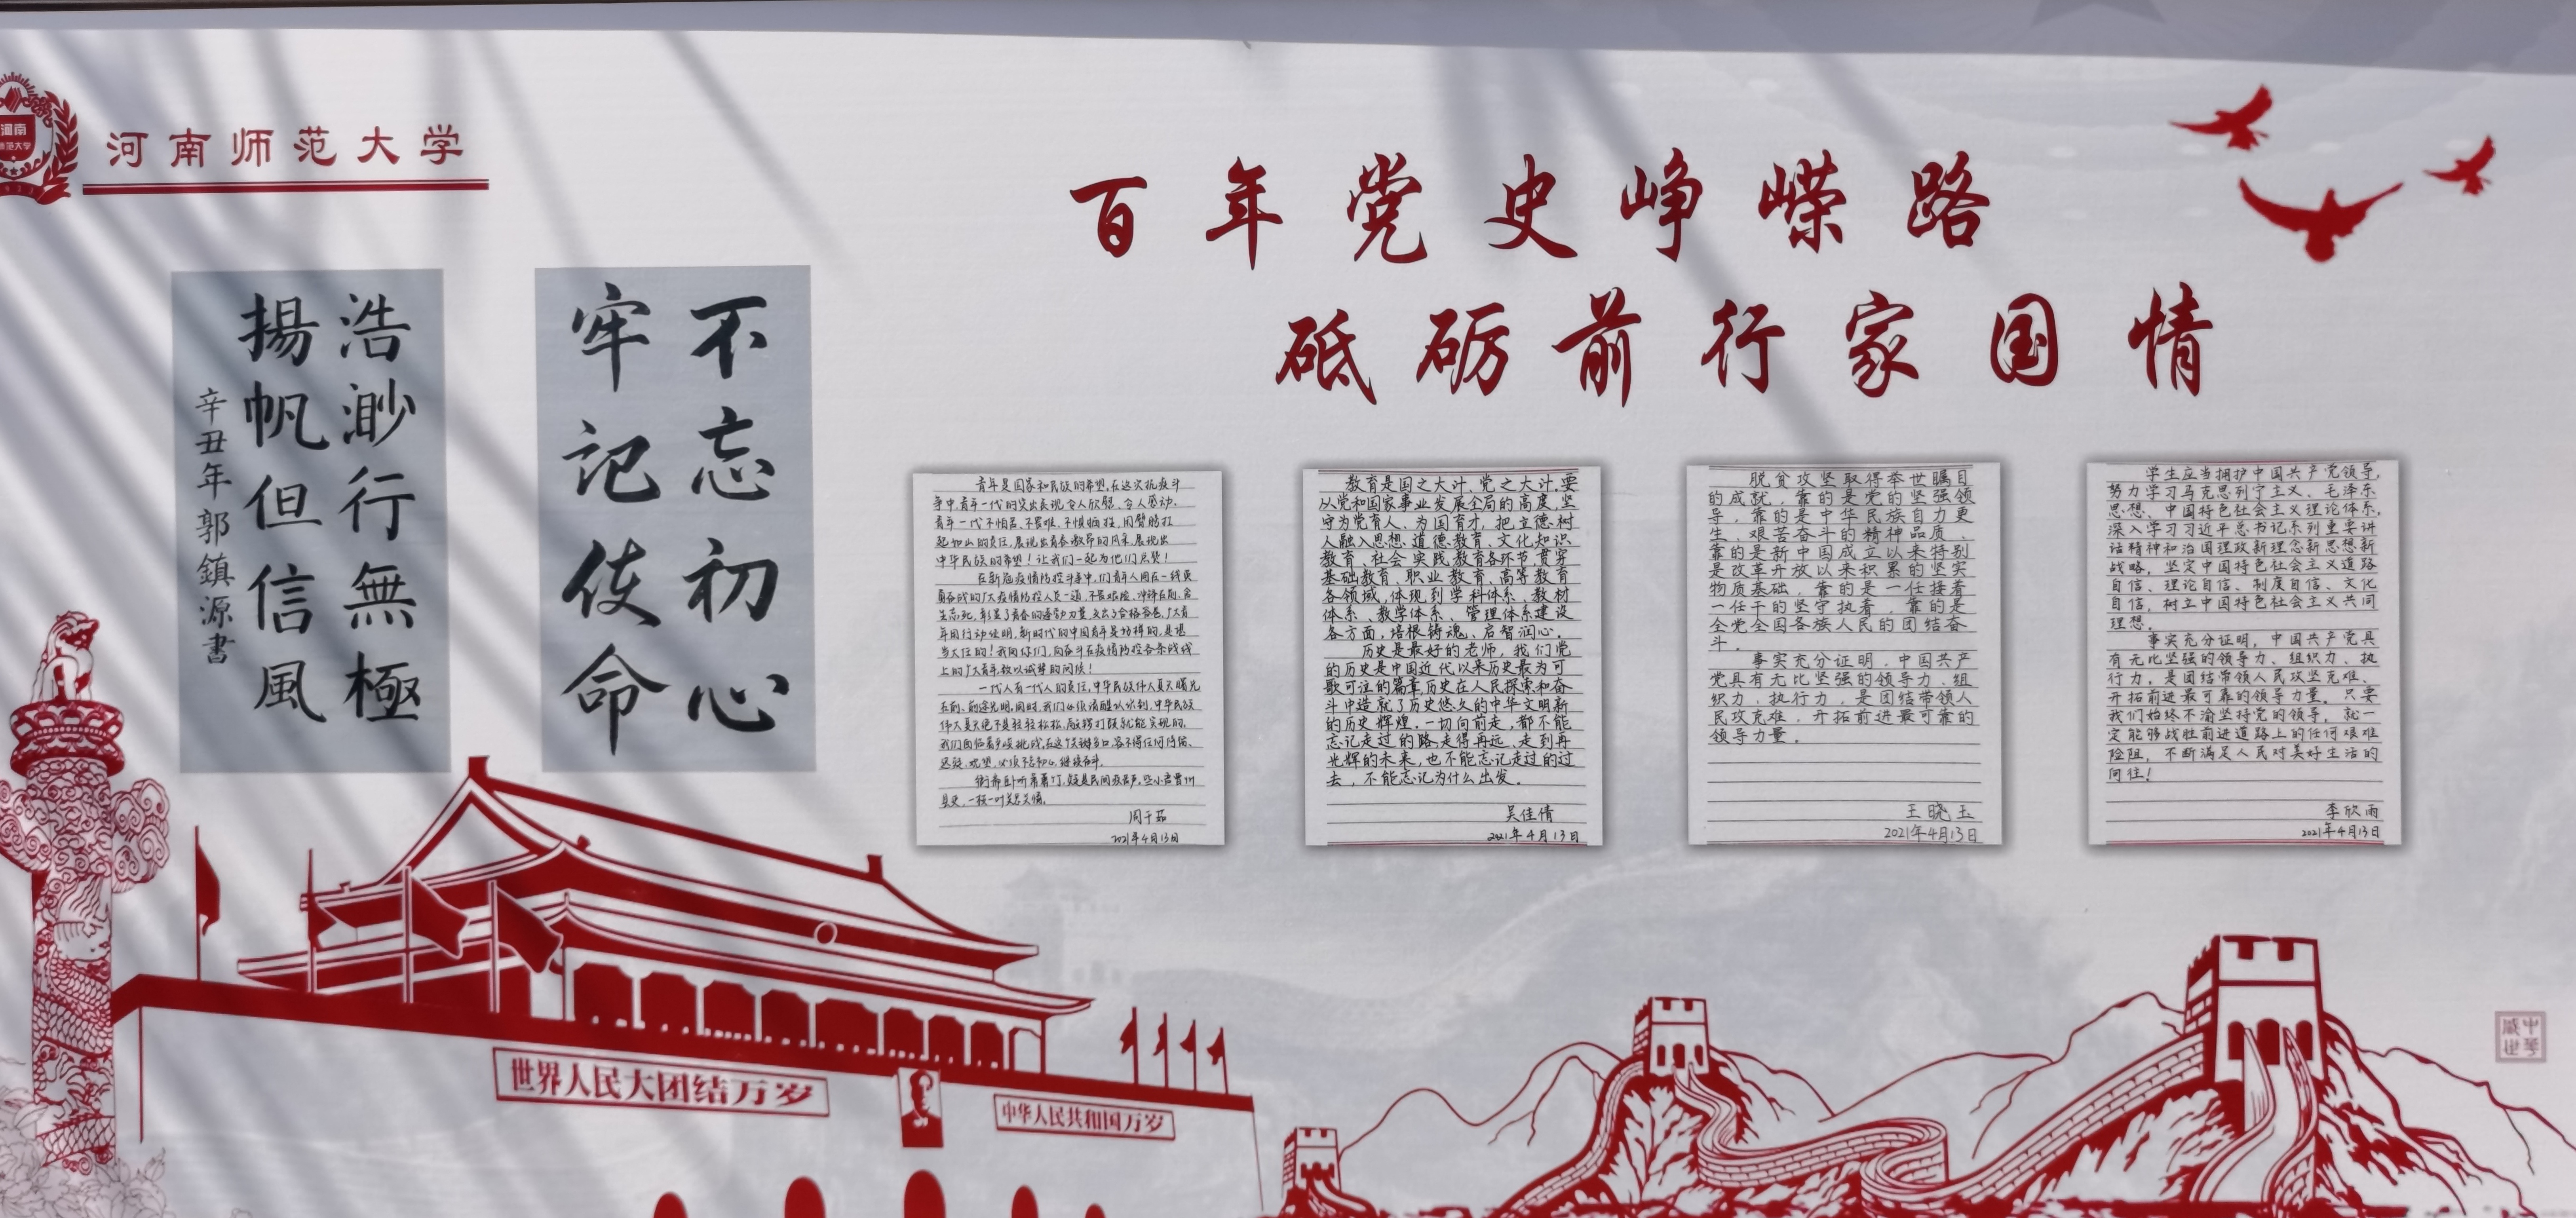 河南
河南师范大学
百年党史峥嵘路
砥砺前行家国情
不忘初心
牢记使命
浩渺行無極
揚帆但信風
辛丑年郭鎮源書
青年是国家和民族的希望,在这次抗疫斗
争中,青年一代的突出表现令人欣慰、令人感动,
青年一代不怕苦、不畏难、不惧牺牲,用臂膀扛
起如山的责任,展现出青春激昂的风采,展现出
中华民族的希望!让我们一起为他们点赞!
在新冠疫情防控斗争中,你们青年人同在一线英
勇奋战的广大疫情防控人员一道,不畏艰险、冲锋在前、舍
生忘死,彰显了青春的蓬勃力量,交出了合格答卷。广大青
年用行动证明,新时代的中国青年是好样的,是堪
当大任的!我向你们、向奋斗在疫情防控各条战线
上的广大青年致以诚挚的问候!
一代人有一代人的责任,中华民族伟大复兴曙光
在前、前途光明。同时,我们必须清醒认识到,中华民族
伟大复兴绝不是轻轻松松、敲锣打鼓就能实现的,
我们面临着
衙斋卧听萧萧竹,疑是民间疾苦声。些小吾曹州
县吏,一枝一叶总关情。
2021年4月13日
教育是国之大计、党之大计,要
以党和国家事业发展全局的高度,坚
守为党育人、为国育才,把立德树
人融入思想道德教育、文化知识
教育、社会实践教育各环节,贯穿
基础教育、职业教育、高等教育
各领域,体现到学科体系、教材
体系、教学体系、管理体系建设
各方面,培根铸魂、启智润心。
历史是最好的老师,我们党
的历史是中国近代以来历史最为可
歌可泣的篇章,历史在人民探索和奋
斗中造就了历史悠久的中华文明新
的历史辉煌。一切向前走,都不能
忘记走过的路,走得再远、走到再
光辉的未来,也不能忘记走过的过
去,不能忘记为什么出发。
吴佳倩
2021年4月13日
脱贫攻坚取得举世瞩目
的成就,靠的是党的坚强领
导,靠的是中华民族自力更
生、艰苦奋斗的精神品质,
靠的是新中国成立以来特别
是改革开放以来积累的坚实
物质基础,靠的是一任接着
一任干的坚守执着,靠的是
全党全国各族人民的团结奋
斗。
事实充分证明,中国共产
党具有无比坚强的领导力、组
织力、执行力,是团结带领人
民攻克难、开拓前进最可靠的
领导力量。
王晓玉
2021年4月13日
学生应当拥护中国共产党领导,
努力学习马克思列宁主义、毛泽东
思想、中国特色社会主义理论体系,
深入学习习近平总书记系列重要讲
话精神和治国理政新理念新思想新
战略,坚定中国特色社会主义道路
自信、理论自信、制度自信、文化
自信,树立中国特色社会主义共同
理想。
事实充分证明,中国共产党具
有无比坚强的领导力、组织力、执
行力,是团结带领人民攻坚克难、
开拓前进最可靠的领导力量。只要
我们始终不渝坚持党的领导,就一
定能够战胜前进道路上的任何艰难
险阻,不断满足人民对美好生活的
向往!
李欣雨
2021年4月13日
世界人民大团结万岁
中华人民共和国万岁